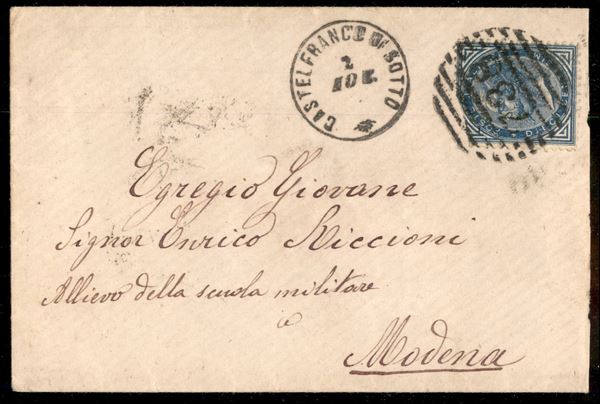 CASTELFRANCO DI SOTTO
2
NOV.
Egregio Giovane
Signor Enrico Riccioni
Allievo della scuola militare
Modena